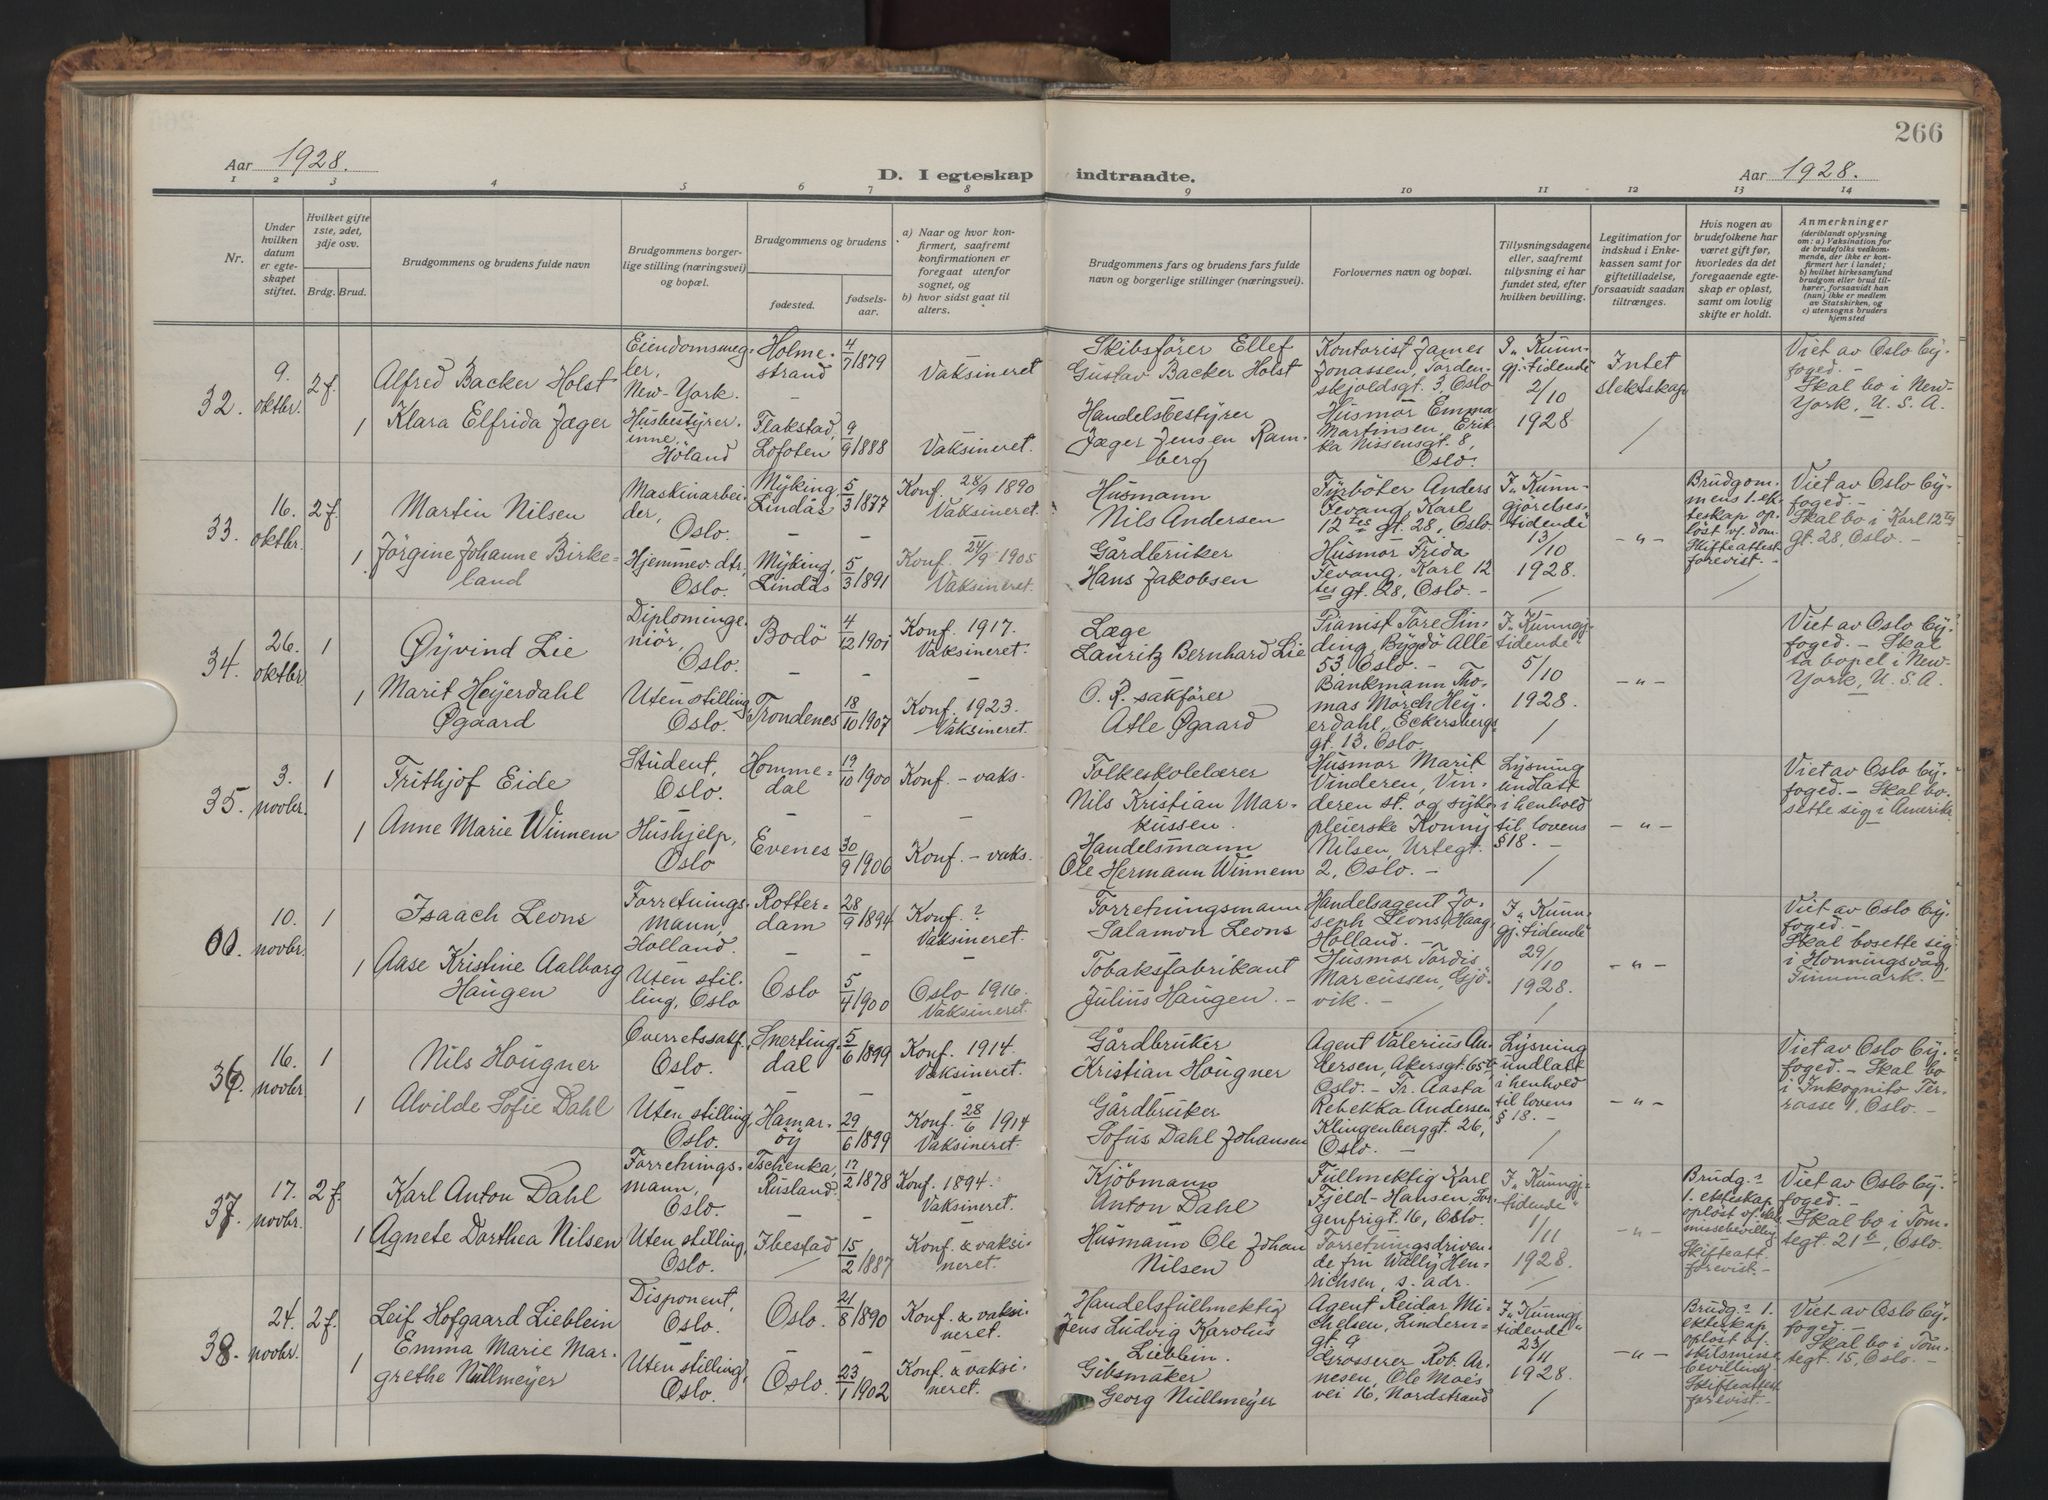 266
Aar 1928.
D. I egteskap indtraadte.
Aar 1928.
1 2 3 4 5 6 7 8 9 10 11 12 13 14
Nr.
Under
hvilken
datum
er egte-
skapet
stiftet.
Hvilket gifte
1ste, 2det,
3dje osv.
Brdg. Brud.
Brudgommens og brudens fulde navn
Brudgommens borger-
lige stilling (næringsvei)
og bopæl.
Brudgommens og brudens
fødested.
fødsels-
aar.
a) Naar og hvor kon-
firmert, saafremt
konfirmationen er
foregaat utenfor
sognet, og
b) hvor sidst gaat til
alters.
Brudgommens fars og brudens fars fulde
navn og borgerlige stillinger (næringsvei).
Forlovernes navn og bopæl.
Tillysningsdagene
eller, saafremt
tillysning ei har
fundet sted, efter
hvilken bevilling.
Legitimation for
indskud i Enke-
kassen samt for
giftetilladelse,
forsaavidt saadan
tiltrænges.
Hvis nogen av
brudefolkene har
været gift før,
hvorledes da det
foregaaende egte-
skap er opløst,
samt om lovlig
skifte er holdt.
Anmerkninger
(deriblandt oplysning
om: a) Vaksination for
de brudefolks vedkom-
mende, der ikke er kon-
firmert her i landet;
b) hvilket kirkesamfund
brudgom eller brud til-
hører, forsaavidt han
(hun) ikke er medlem
av Statskirken, og
c) utensogns bruders
hjemsted
32.
9.
oktbr.
2 f.
1
Alfred Backer Holst
Klara Elfrida Jæger
Eiendomsmeg-
ler,
New-York.
Husbestyrer-
inne,
Höland
Holme-
strand
–
Flakstad,
Lofoten
4/7 1879
9/9 1888
Vaksineret
Vaksineret.
Skibsförer Ellef
Gustav Backer Holst
Handelsbestyrer
Jæger Jensen Ram-
berg
Kontorist James
Jonassen, Torden-
skjoldsgt. 3, Oslo
Husmor Emma
Martinsen, Erik-
ka Nissensgt. 8,
Oslo.
I „Kunn-
gj. tidende"
2/10
1928
Intet
slektskap
/
Viet av Oslo by-
foged. –
Skal bo i New-
York, U.S.A.
33.
16.
oktbr.
2 f.
1
Martin Nilsen
Jörgine Johanne Birke-
land
Maskinarbei-
der,
Oslo.
Hjemmev. dtr.
Oslo.
Myking,
Lindås
–
Myking,
Lindås
5/3 1877
–
5/3 1891
Konf. 28/9 1890
Vaksineret.
–
Konf. 24/9 1905
Vaksineret.
Husmann
Nils Andersen
Gårdbruker
Hans Jakobsen
Fyrböter Anders
Fevang, Karl
12 tes gt. 28, Oslo
Husmor Frida
Fevang, Karl 12
tes gt. 28, Oslo. –
I „Kunn-
gjörelses-
tidende"
13/10
1928.
/
– " –
Brudgom-
mens 1. ek-
teskap op-
löst v. dom.
Skifteattest
forevist. –
/
Viet av Oslo by-
foged. –
Skal bo i Karl 12 tes
gt. 28, Oslo. –
34.
26.
oktbr.
1
1
Øyvind Lie
Marit Heyerdahl
Øgaard
Diplominge-
niör,
Oslo.
Uten stilling,
Oslo.
Bodö
–
Trondenes
4/12 1901
–
18/10 1907
Konf. 1917.
Vaksineret.
–
Konf. 1923.
Vaksineret.
Læge
Lauritz Bernhard Lie
O. R. sakförer
Atle Øgaard
Pianist Tore Sin-
ding, Bygdö Alle
53, Oslo. –
Bankmann Tho-
mas Mörch Hey-
erdahl, Eckersbergs
gt. 13, Oslo.
I „Kunngj.
tidende"
5/10
1928.
/
– " –
Viet av Oslo by-
foged. – Skal
ta bopel i New-
York, U.S.A.
35.
3.
novbr.
1
1
Frithjof Eide
Anne Marie Winnem
Student,
Oslo.
Hushjelp,
Oslo
Homme-
dal
–
Evenes
19/10 1900
–
30/9 1906
Konf. – vaks.
–
Konf. – vaks.
Folkeskolelærer
Nils Kristian Mar-
kussen.
Handelsmann
Ole Hermann Winnem
Husmor Marit
Vinderen, Vin-
deren st. og syke-
pleierske Konny
Nilsen, Urtegt.
2, Oslo. –
Lysning
undlatt
i henhold
til lovens
§ 18. –
/
– " –
Viet av Oslo by-
foged. – Skal bo-
sette sig i Amerika
00.
10.
novbr.
1
1
Isaach Leons
Aase Kristine Aalborg
Haugen
Forretnings-
mann,
Holland.
Uten stil-
ling, Oslo
Rotter-
dam
–
Oslo
28/9 1894
–
5/4 1900
Konf. ?
Vaksineret.
–
Oslo 1916.
Vaksineret.
Forretningsmann
Salamon Leons
Tobaksfabrikant
Julius Haugen. –
Handelsagent Jo-
seph Leons, Haag,
Holland. –
Husmor Tordis
Marcussen, Gjö-
vik. –
/
I „Kunn-
gj. tidende"
29/10
1928.
/
– " –
Viet av Oslo by-
foged. –
Skal bosette sig
i Honningsvåg,
Finnmark. –
36.
16.
novbr.
1
1
Nils Hougner
Alvilde Sofie Dahl
Overretssakf.
Oslo.
Uten stilling,
Oslo.
Snerting-
dal
–
Hamar-
öy
5/6 1899
–
29/6 1899
Konf. 1914.
Vaksineret.
–
Konf. 28/6 1914
Vaksineret.
Gårdbruker
Kristian Hougner
Gårdbruker
Sofus Dahl Johansen
Agent Valerius An-
dersen, Akersgt. 65
Oslo. – Fr. Aasta
Rebekka Andersen,
Klingenberggt. 26,
Oslo. –
Lysning
undlatt
i henhold
til lovens
§ 18. –
/
– " –
Viet av Oslo by-
foged. – Skal bo
i Inkognito Ter-
rasse 4, Oslo. –
37.
17.
novbr.
2 f.
1
Karl Anton Dahl
Agnete Dorthea Nilsen
Forretnings-
mann,
Oslo.
Uten stilling,
Oslo.
Tschenka,
Rusland.
Ibestad
/
17/2 1878
15/2 1887
Konf. 1894.
Vaksineret.
Konf. & vaksi-
neret.
Kjöbmann
Anton Dahl
Husmann Ole Johan
Nilsen
Fullmektig Karl
Fjeld-Hansen, Sor-
genfrigt. 16, Oslo.
Forretningsdriven-
de fru Wally Hen-
richsen, s. adr.
I „Kunngj.
tidende"
1/11
1928.
/
– " –
Brudg.s
1. ekteskap
oplöst v. skils-
missebevilling
Skifteatt.
forevist. –
Viet av Oslo by-
foged. –
Skal bo i Tom-
tegt. 21 b, Oslo.
/
38.
24.
novbr.
2 f.
1
Leif Hofgaard Lieblein
Emma Marie Mar-
grethe Nüllmeyer
Disponent,
Oslo.
Uten stilling,
Oslo.
Oslo.
–
Oslo.
21/8 1890
–
23/1 1902
Konf. & vaksi-
neret.
–
Konf. & vaksi-
neret.
Handelsfullmektig
Jens Ludvig Karolus
Lieblein.
Gibsmaker
Georg Nüllmeyer
Agent Reidar Mi-
chelsen, Lindern-
gt. 9
Grosserer Rob. Ar-
nesen, Ole Moes
vei 16, Nordstrand
I „Kunngj.
tidende"
23/11
1928.
/
– " –
Brudg.s 1.
ekteskap
oplöst v.
skilsmisse-
bevilling.
Skifteattest
forevist. –
/
Viet av Oslo by-
foged. –
Skal bo i Tom-
tegt. 15, Oslo. –